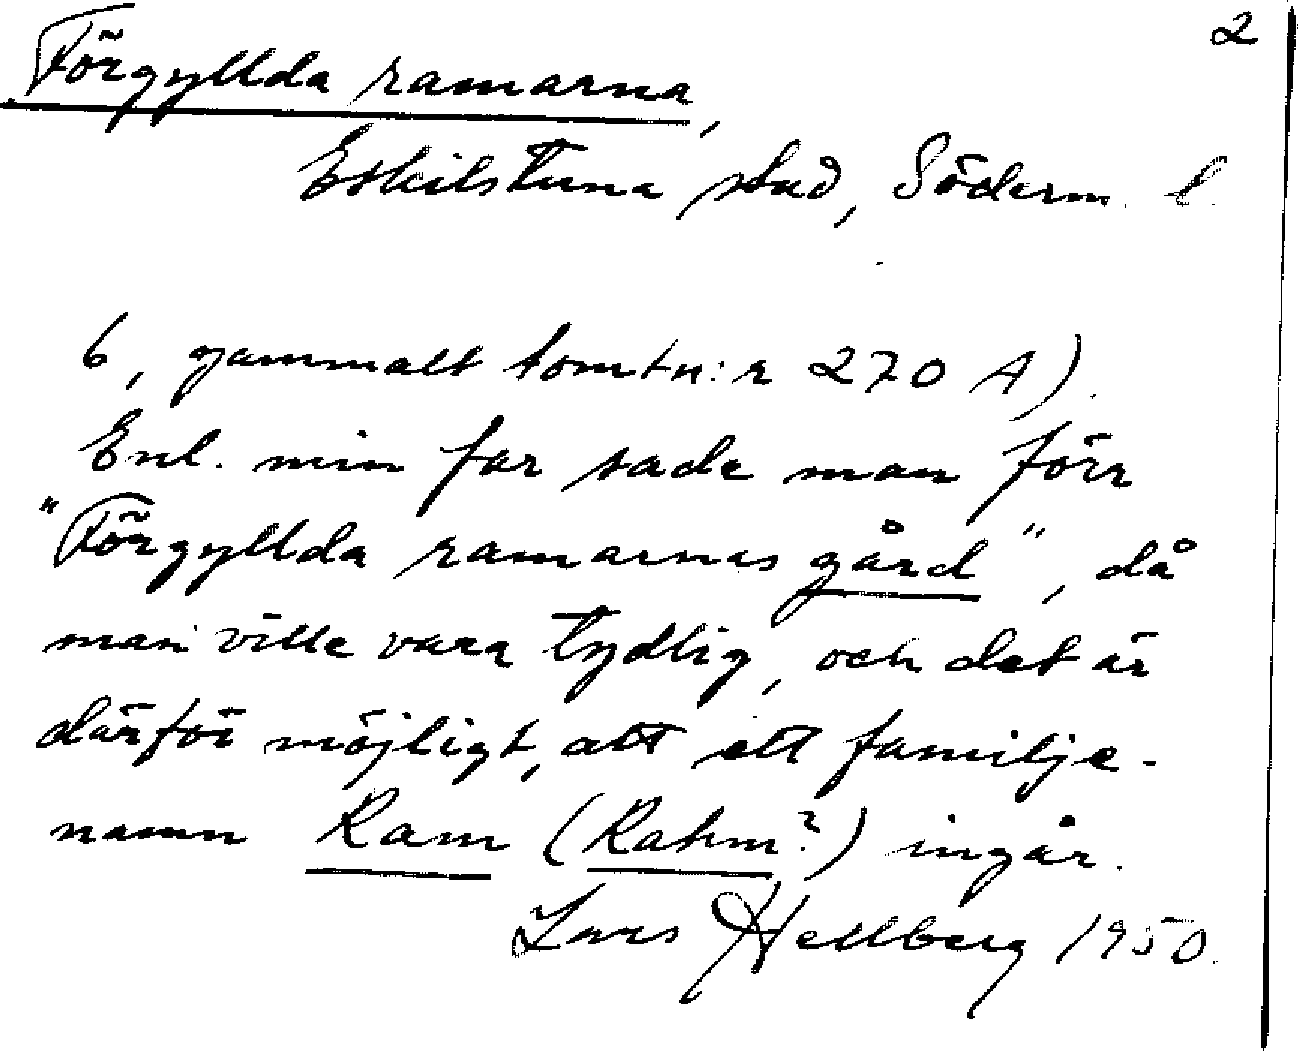 2
Förgyllda ramarna,
Eskilstuna stad, Söderm. l.
6, gammalt tomtn:r 270 A).
Enl. min far sade man förr
"Förgyllda ramarnas gård", då
man ville vara tydlig, och det är
därför möjligt, att ett familje-
namn Ram (Rahm?) ingår.
Lars Hellberg 1950.